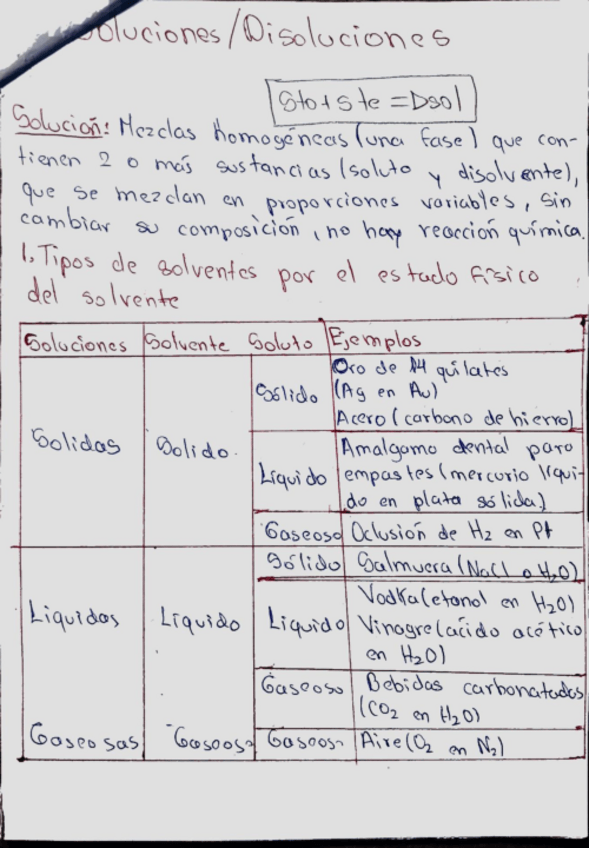 Soluciones/Disoluciones
Sto + Ste = Dsol
Solución: Mezclas homogéneas (una fase) que con-
tienen 2 o más sustancias (soluto y disolvente),
que se mezclan en proporciones variables, sin
cambiar su composición, no hay reacción química.
1. Tipos de solventes por el estado físico
del solvente
Soluciones Solvente Soluto Ejemplos
Solidas Solido Sólido Oro de 14 quilates
(Ag en Au)
Acero (carbono de hierro)
Líquido Amalgama dental para
empastes (mercurio líqui-
do en plata sólida)
Gaseoso Oclusión de H2 en Pt
Líquidas Líquido Sólido Salmuera (NaCl o H2O)
Líquido Vodka (etanol en H2O)
Vinagre (ácido acético
en H2O)
Gaseoso Bebidas carbonatadas
(CO2 en H2O)
Gaseosas Gaseoso Gaseoso Aire (O2 en N2)